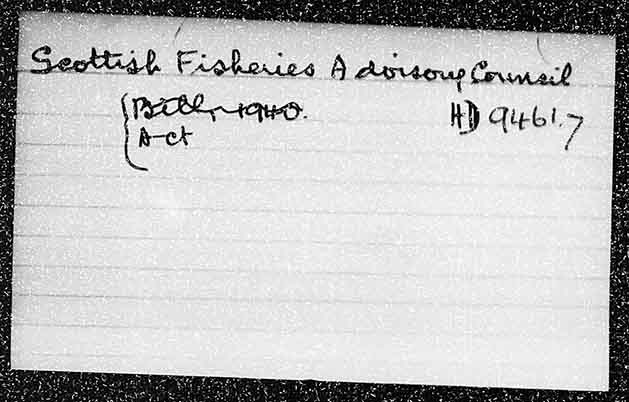 Scottish Fisheries Advisory Council
Bill, 1940. HD 9461.7
Act